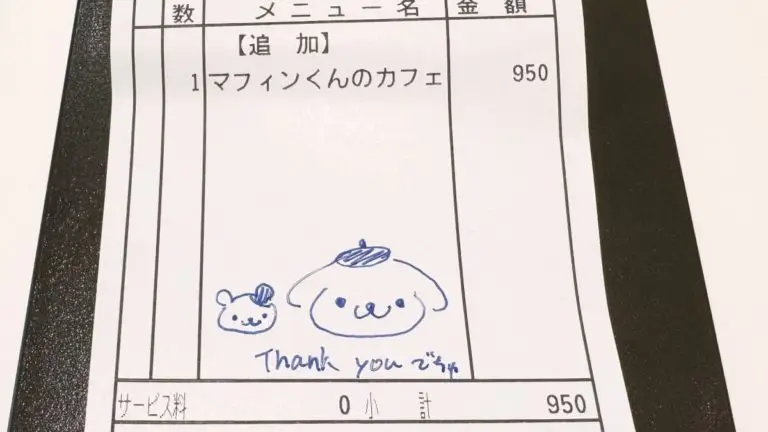 数 メニュー名 金額
【追加】
1 マフィンくんのカフェ 950
Thank you でちゅ
サービス料 0 小計 950